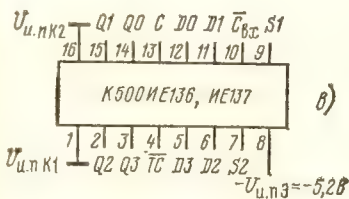 Uи.пK2 Q1 Q0 C D0 D1 C̅вх S1
16 15 14 13 12 11 10 9
K500ИЕ136, ИЕ137
в)
1 2 3 4 5 6 7 8
Uи.пK1 Q2 Q3 T̅C̅ D3 D2 S2
-Uи.пЭ=-5,2В